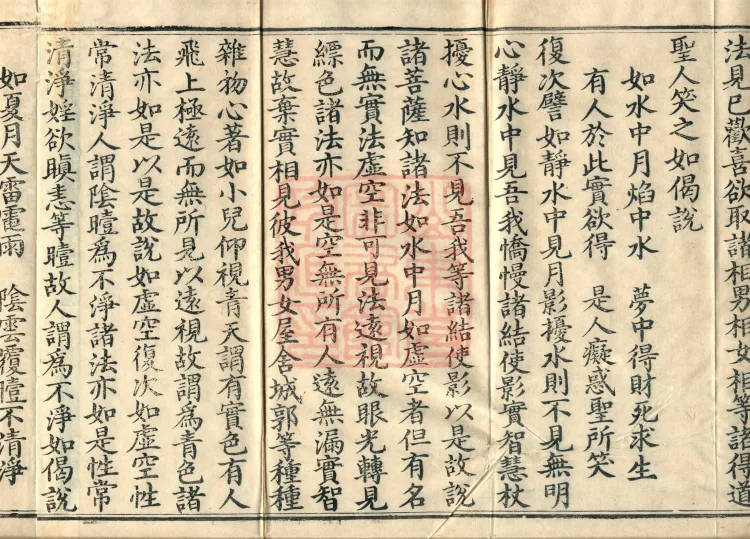 法見已歡喜欲取諸相男相女相等諸得道
聖人笑之如偈說
如水中月焰中水 夢中得財死求生
有人於此實欲得 是人癡惑聖所笑
復次譬如靜水中見月影擾水則不見無明
心靜水中見吾我憍慢諸結使影實智慧杖
擾心水則不見吾我等諸結使影以是故說
諸菩薩知諸法如水中月如虛空者但有名
而無實法虛空非可見法遠視故眼光轉見
縹色諸法亦如是空無所有人遠無漏實智
慧故棄實相見彼我男女屋舍城郭等種種
雜物心著如小兒仰視青天謂有實色有人
飛上極遠而無所見以遠視故謂為青色諸
法亦如是以是故說如虛空復次如虛空性
常清淨人謂陰曀為不淨諸法亦如是性常
清淨婬欲瞋恚等曀故人謂為不淨如偈說
如夏月天雷電雨 陰雲覆曀不清淨